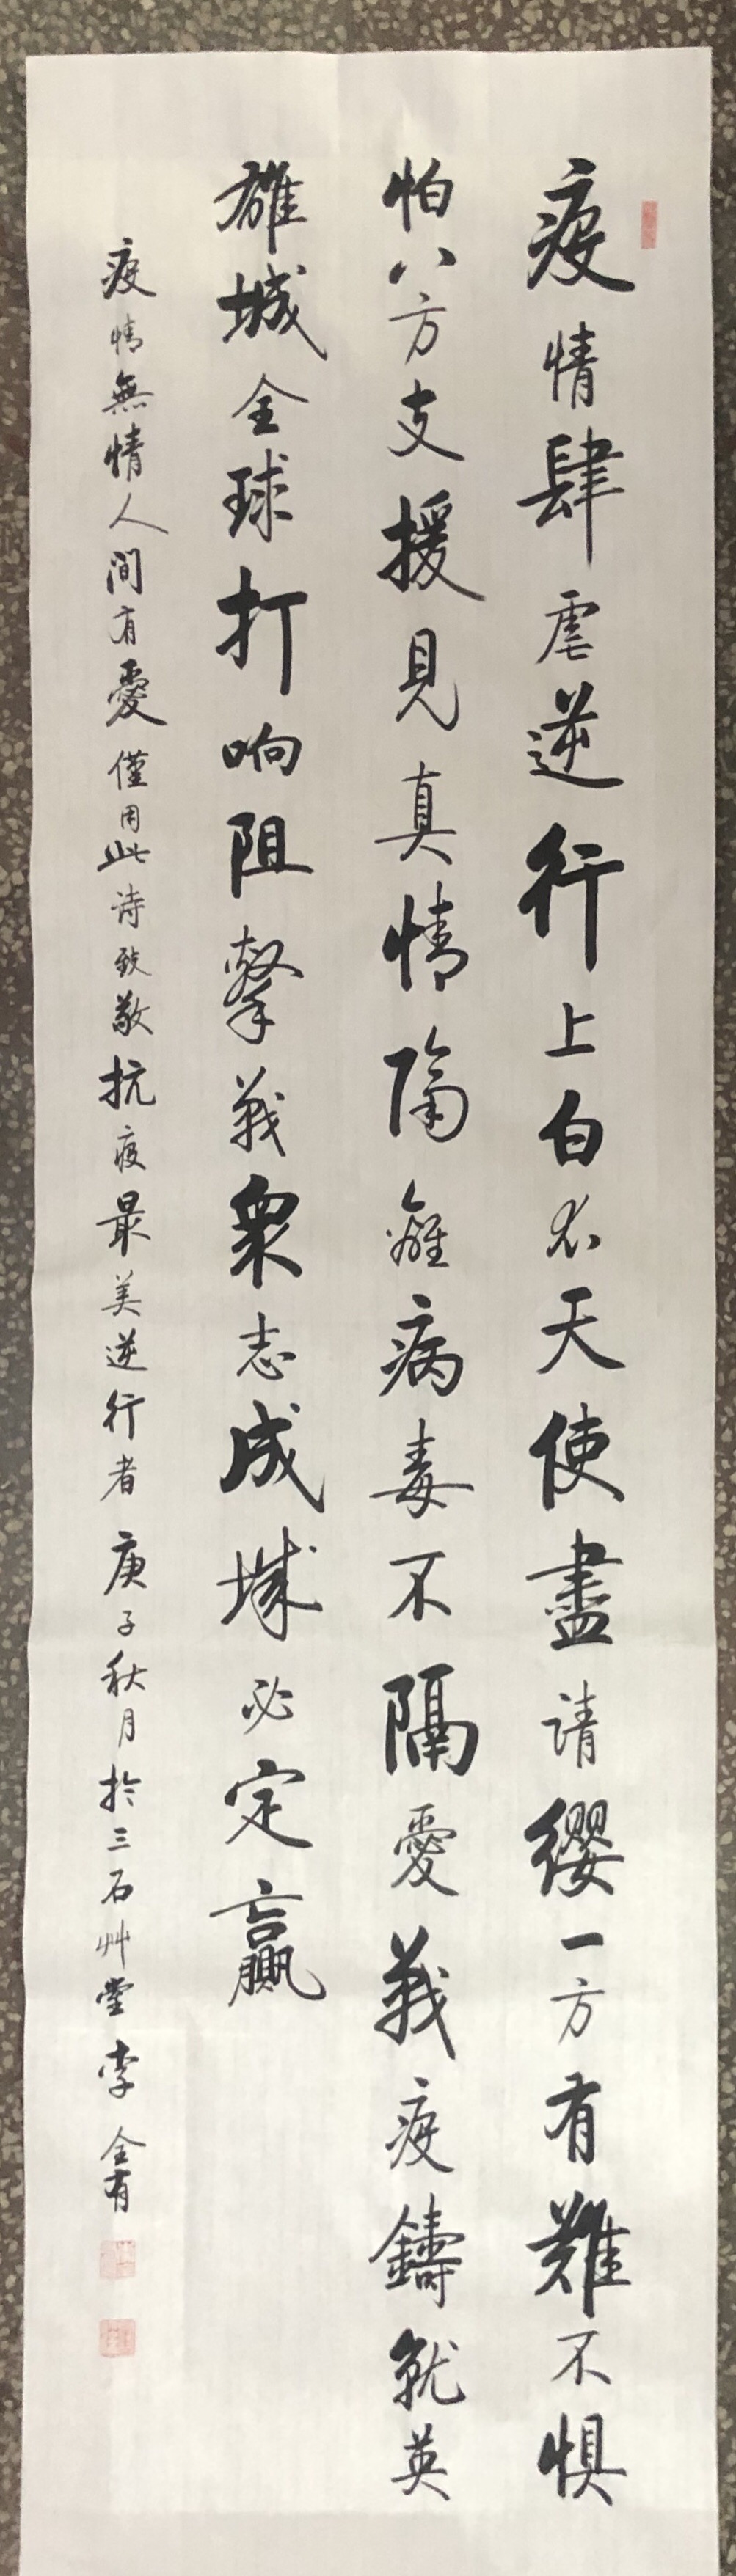 疫情肆虐逆行上白衣天使盡请缨一方有難不惧
怕八方支援見真情隔離病毒不隔愛戰疫鑄就英
雄城全球打响阻擊戰衆志成城必定贏
疫情無情人间有愛僅用此诗致敬抗疫最美逆行者庚子秋月於三石艸堂李全有